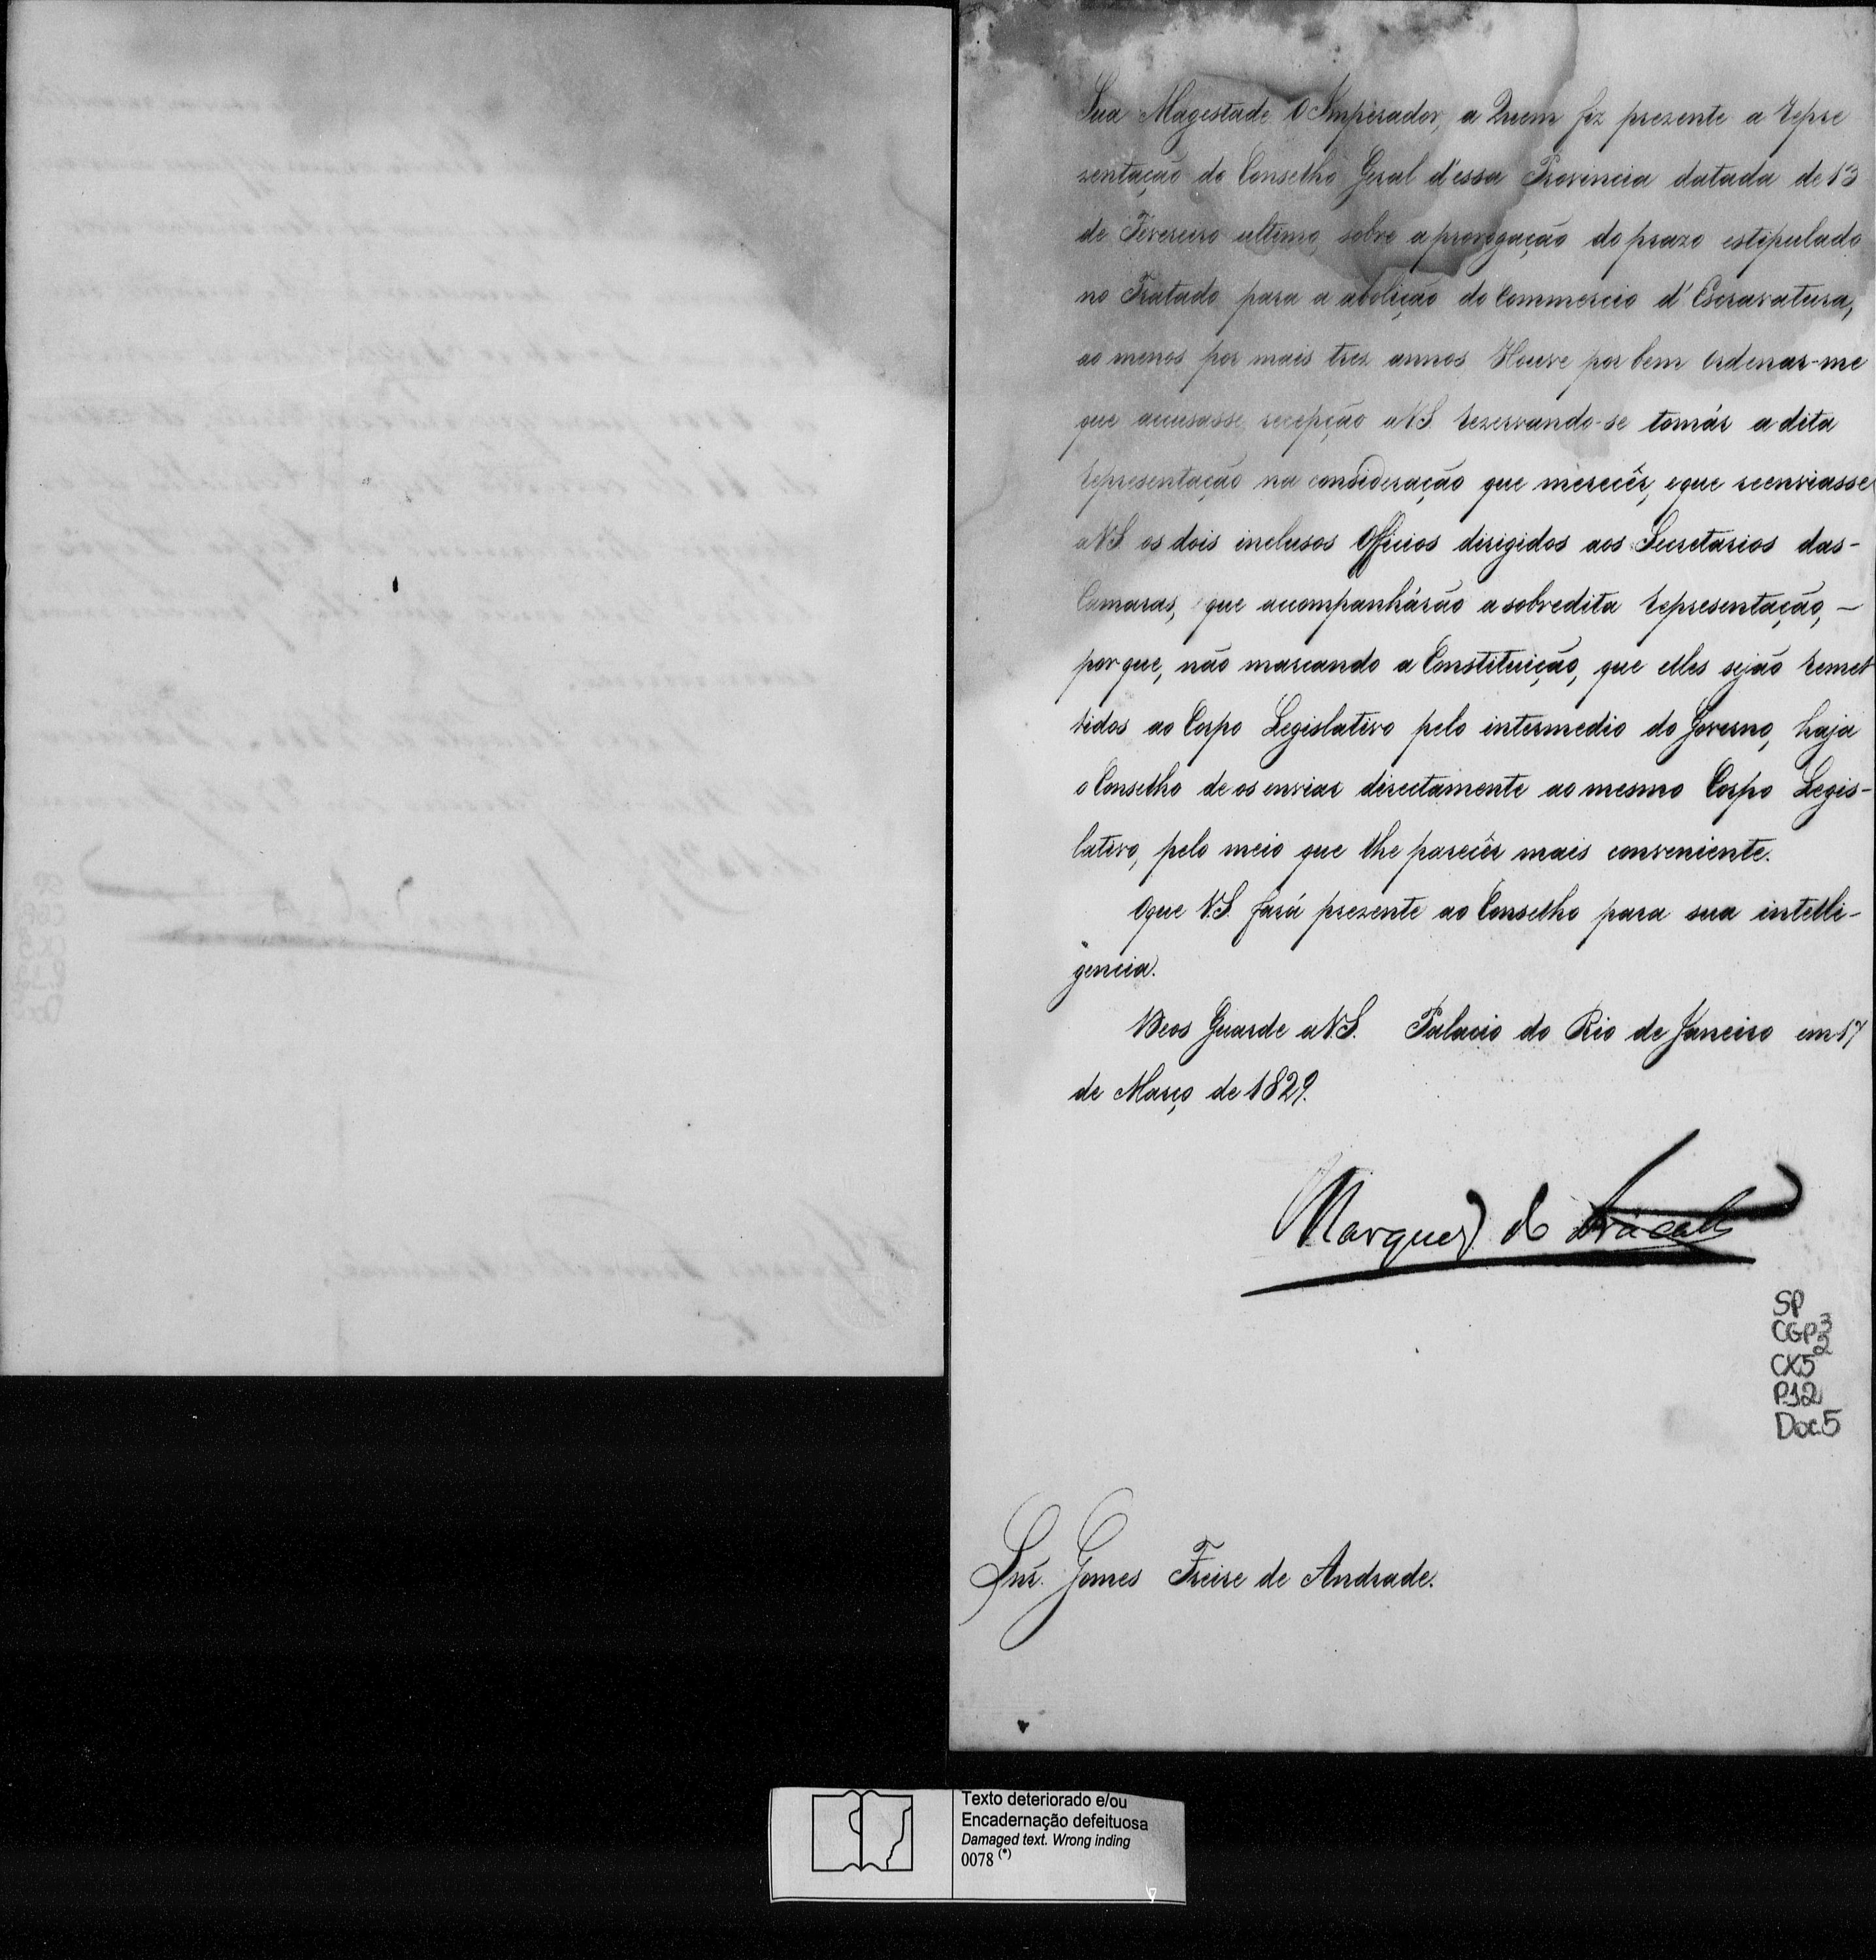 Sua Magestade O Imperador, a Quem fiz prezente a Repre
zentação do Conselho Geral d'essa Provincia datada de 13
de Fevereiro ultimo, sobre a prorogação do prazo estipulado
no Tratado para a abolição do Commercio d'Escravatura,
ao menos por mais trez annos, Houve por bem Ordenar-me
que accusasse recepção a V.S. rezervando-se tomár a dita
Representação na consideração que merecêr, e que reenviasse
a V.S. os dois inclusos Officios dirigidos aos Secretarios das-
Camaras, que acompanhárão a sobredita Representação, -
por que, não marcando a Constituição, que elles sejão remet
tidos ao Corpo Legislativo pelo intermedio do Governo, haja
o Conselho de os enviar directamente ao mesmo Corpo Legis-
lativo, pelo meio que lhe parecêr mais conveniente.
O que V.S. fará prezente ao Conselho para sua intelli-
gencia.
Deos Guarde a V.S. Palacio do Rio de Janeiro em 17
de Março de 1829.
Marquez de Aracaty
SP
CGP3
2
CX5
P12
Doc.5
Snr. Gomes Freire de Andrade.
Texto deteriorado e/ou
Encadernação defeituosa
Damaged text. Wrong inding
0078 (*)